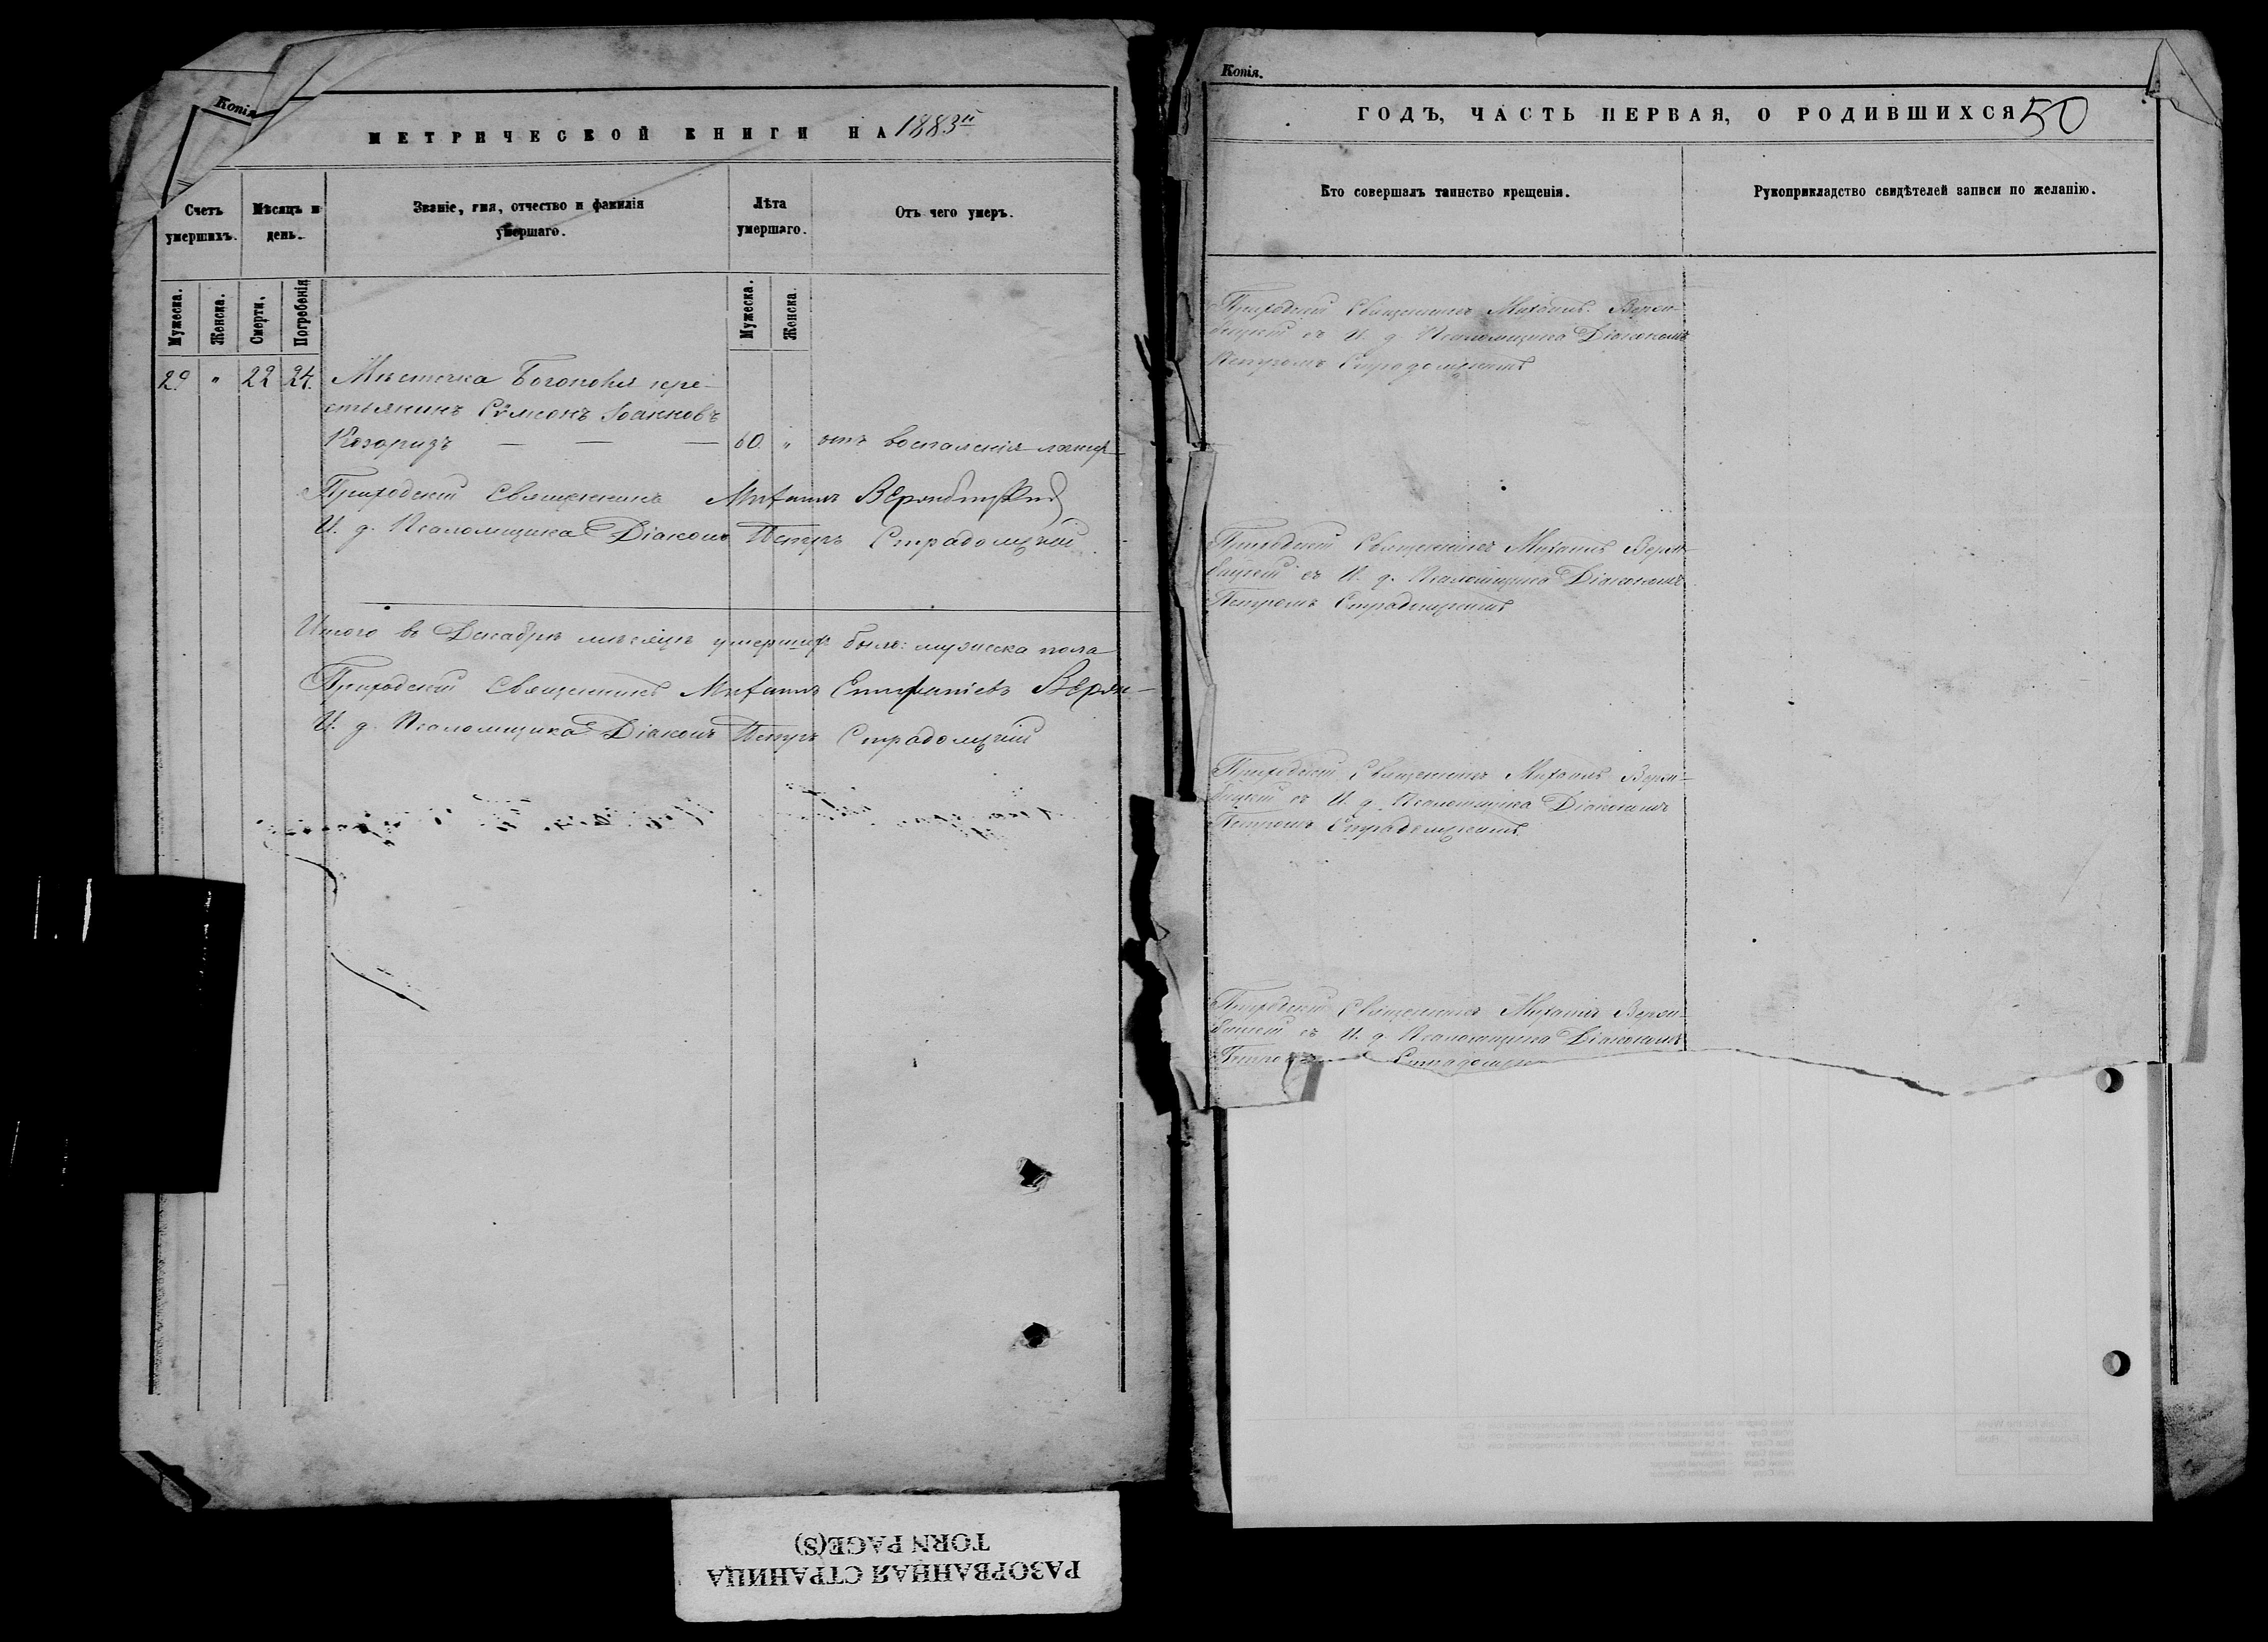 Копія
МЕТРИЧЕСКОЙ КНИГИ НА 1883й
Счетъ умершихъ.
Мѣсяцъ и день.
Званіе, имя, отчество и фамилія умершаго.
Лѣта умершаго.
Отъ чего умеръ.
Мужеска.
Женска.
Смерти.
Погребенія
Мужеска.
Женска.
29 " 22 24. Мѣстечка Богополя кре-
стьянинъ Сѵмеонъ Іоанновъ
Козоризъ — — — 60. " отъ воспаленія легких
Приходскій Священникъ Михаилъ Вербицкій
И. д. Псаломщика Діаконъ Петръ Страдомскій
Итого въ Декабрѣ мѣсяцѣ умершихъ было: мужеска пола
Приходскій Священникъ Михаилъ Епифаніевъ
И. д. Псаломщика Діаконъ Петръ Страдомскій
Копія.
ГОДЪ, ЧАСТЬ ПЕРВАЯ, О РОДИВШИХСЯ 50
Кто совершалъ таинство крещенія.
Рукоприкладство свидѣтелей записи по желанію.
Приходскій Священникъ Михаилъ
съ И. д. Псаломщика Діакономъ
Петромъ Страдомскимъ
Приходскій Священникъ Михаилъ
съ И. д. Псаломщика Діакономъ
Петромъ Страдомскимъ
Приходскій Священникъ Михаилъ
съ И. д. Псаломщика Діакономъ
Петромъ Страдомскимъ
Приходскій Священникъ Михаилъ
съ И. д. Псаломщика Діакономъ
РАЗОРВАННАЯ СТРАНИЦА
TORN PAGE(S)